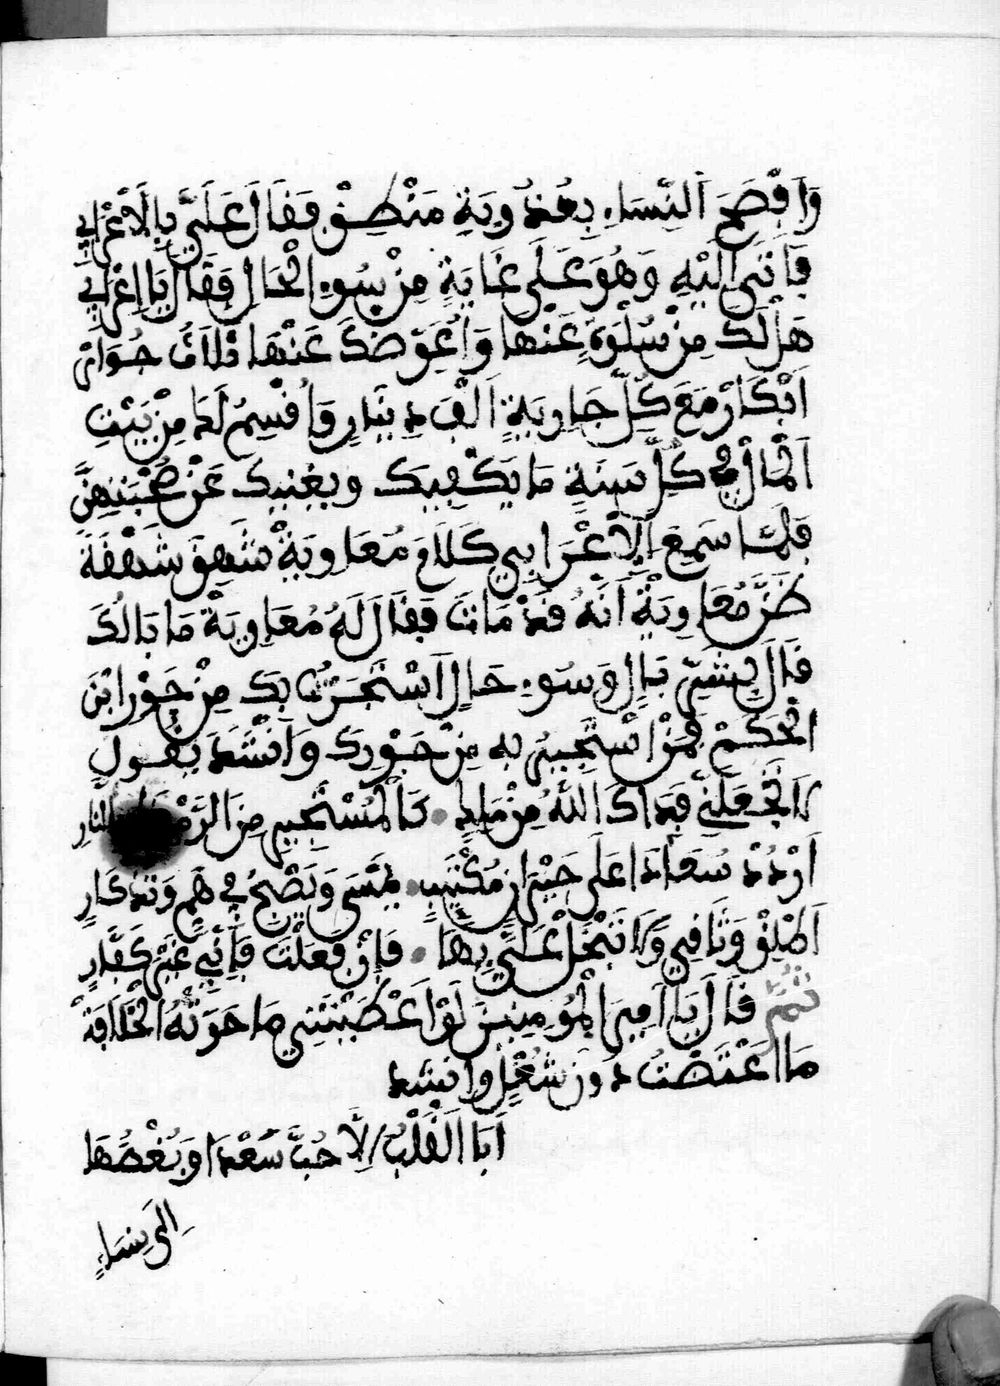 وَأَفْصَحَ ٱلنِّسَاءِ بِعُذُوبَةِ مَنْطِقٍ فَقَالَ عَلَيَّ بِالَاعْرَابِي
فَأَتَى إلَيْهِ وَهُوَ عَلَى غَايَةٍ مِنْ سُوءِ الْحَالِ فَقَالَ يَا اعْرَابِي
هَلْ لَكَ مِنْ سُلْوَةٍ عَنْهَا وَأُعَوِّضُكَ عَنْهَا ثَلَاثَ جَوَارٍ
أَبْكَارٍ مَعَ كُلِّ جَارِيَةٍ أَلْفَ دِينَارٍ وَأُقْسِمُ لَكَ مِنْ بَيْتِ
ٱلْمَالِ فِي كُلِّ سَنَةٍ مَا يَكْفِيكَ وَيُغْنِيكَ عَنْ صُحْبَتِهِنَّ
فَلَمَّا سَمِعَ ٱلَاعْرَابِي كَلَامَ مُعَاوِيَةْ شَهِقَ شَهْقَةً
ظَنَّ مُعَاوِيَةْ أَنَّهُ قَدْ مَاتَ فَقَالَ لَهُ مُعَاوِيَةْ مَا بَالُكَ
قَالَ بِشَرِّ بَالٍ وَسُوءِ حَالٍ ٱسْتَجَرْتُ بِكَ مِنْ جَوْرِ ابْنِ
الْحَكَمْ فَمَنْ ٱسْتَجِيرُ بِهِ مِنْ جَوْرِكَ وَأَنْشَدَ يَقُولُ
لَا تَجْعَلَنِّي فِدَاكَ اللَّهُ مِنْ مَلِكٍ كَالْمُسْتَجِيرِ مِنَ الرَّمْضَاءِ بِالنَّارِ
ٱرْدُدْ سُعَادَا عَلَى حَيْرَانٍ مُكْتَئِبٍ يُمْسِي وَيُصْبِحُ فِي هَمٍّ وَتَذْكَارٍ
ٱطْلِقْ وَثَاقِي وَلَا تَبْخَلْ عَلَيَّ بِهَا فَإِنْ فَعَلْتَ فَإِنِّي غَيْرُ كَفَّارٍ
ثُمَّ قَالَ يَا أَمِيرَ الْمُؤْمِنِينَ لَوْ أَعْطَيْتَنِي مَا حَوَتْهُ الْخِلَافَةْ
مَا ٱعْتَضْتُ دُونَ سُعْدَى وَأَنْشَدَ
أَبَا ٱلْقَلْبُ إِلَّا حُبَّ سَعْدَا وَبُغْضُهَا
إِلَى نِسَاءٍ